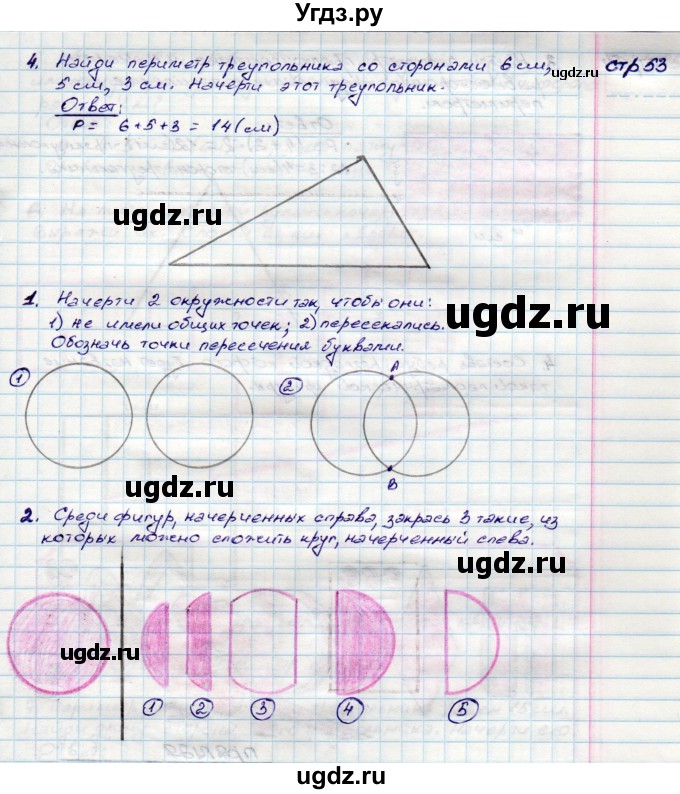 Угдз.ру
4. Найди периметр треугольника со сторонами 6 см, стр 53
5 см, 3 см. Начерти этот треугольник.
Ответ:
P = 6+5+3 = 14 (см)
ugdz.ru
1. Начерти 2 окружности так, чтобы они:
ugdz.ru
1) не имели общих точек; 2) пересекались.
Обозначь точки пересечения буквами.
1 2
A
B
ugdz.ru
2. Среди фигур, начерченных справа, закрась 3 такие, из
которых можно сложить круг, начерченный слева.
ugdz.ru
ugdz.ru
1 2 3 4 5
ugdz.ru